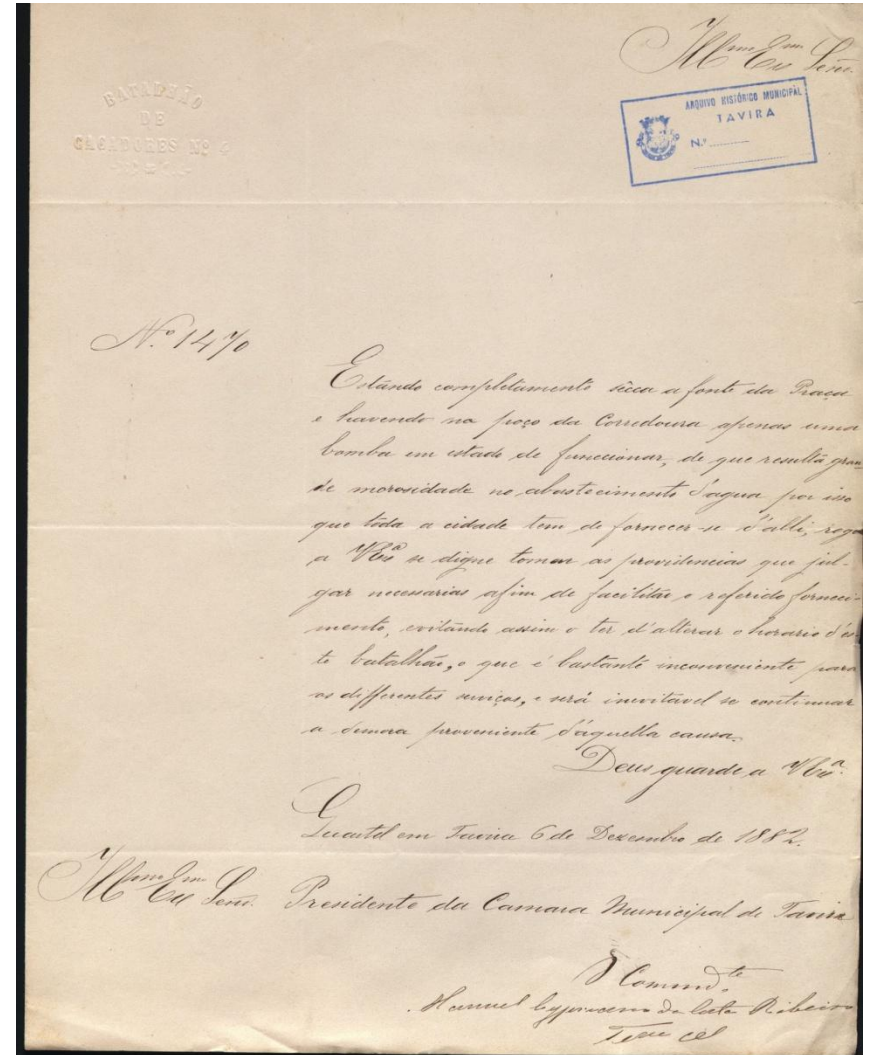 Illmo Exmo Senr.
BATALHÃO
DE
CAÇADORES Nº 4
ARQUIVO HISTÓRICO MUNICIPAL
TAVIRA
N.º
N.º 1470
Estando completamente sêcca a fonte da Praça
e havendo no poço da Corredoura apenas uma
bomba em estado de funccionar, de que resulta gran-
de morosidade no abastecimento d'agua por isso
que toda a cidade tem de fornecer-se d'alli, rogo
a VExª se digne tomar as providencias que jul-
gar necessarias afim de facilitar o referido forneci-
mento, evitando assim o ter d'alterar o horario d'es-
te batalhão, o que é bastante inconveniente para
os differentes serviços, e será inevitavel se continuar
a demora proveniente d'aquella causa.
Deus guarde a VExª.
Quartel em Tavira 6 de Dezembro de 1882.
Illmo Exmo Senr. Presidente da Camara Municipal de Tavira
O Commdte
Manuel Cypriano da Costa Ribeiro
Tene cel